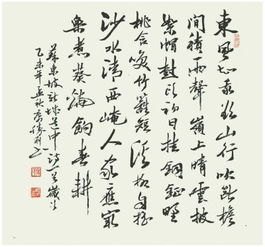 東風知我欲山行吹斷檐
間積雨聲嶺上晴雲披
絮帽樹頭初日掛銅鉦野
桃含笑竹籬短溪柳自搖
沙水清西崦人家應最
樂煮葵燒筍餉春耕
蘇東坡新城道中詩一首歲次
乙未年孟秋